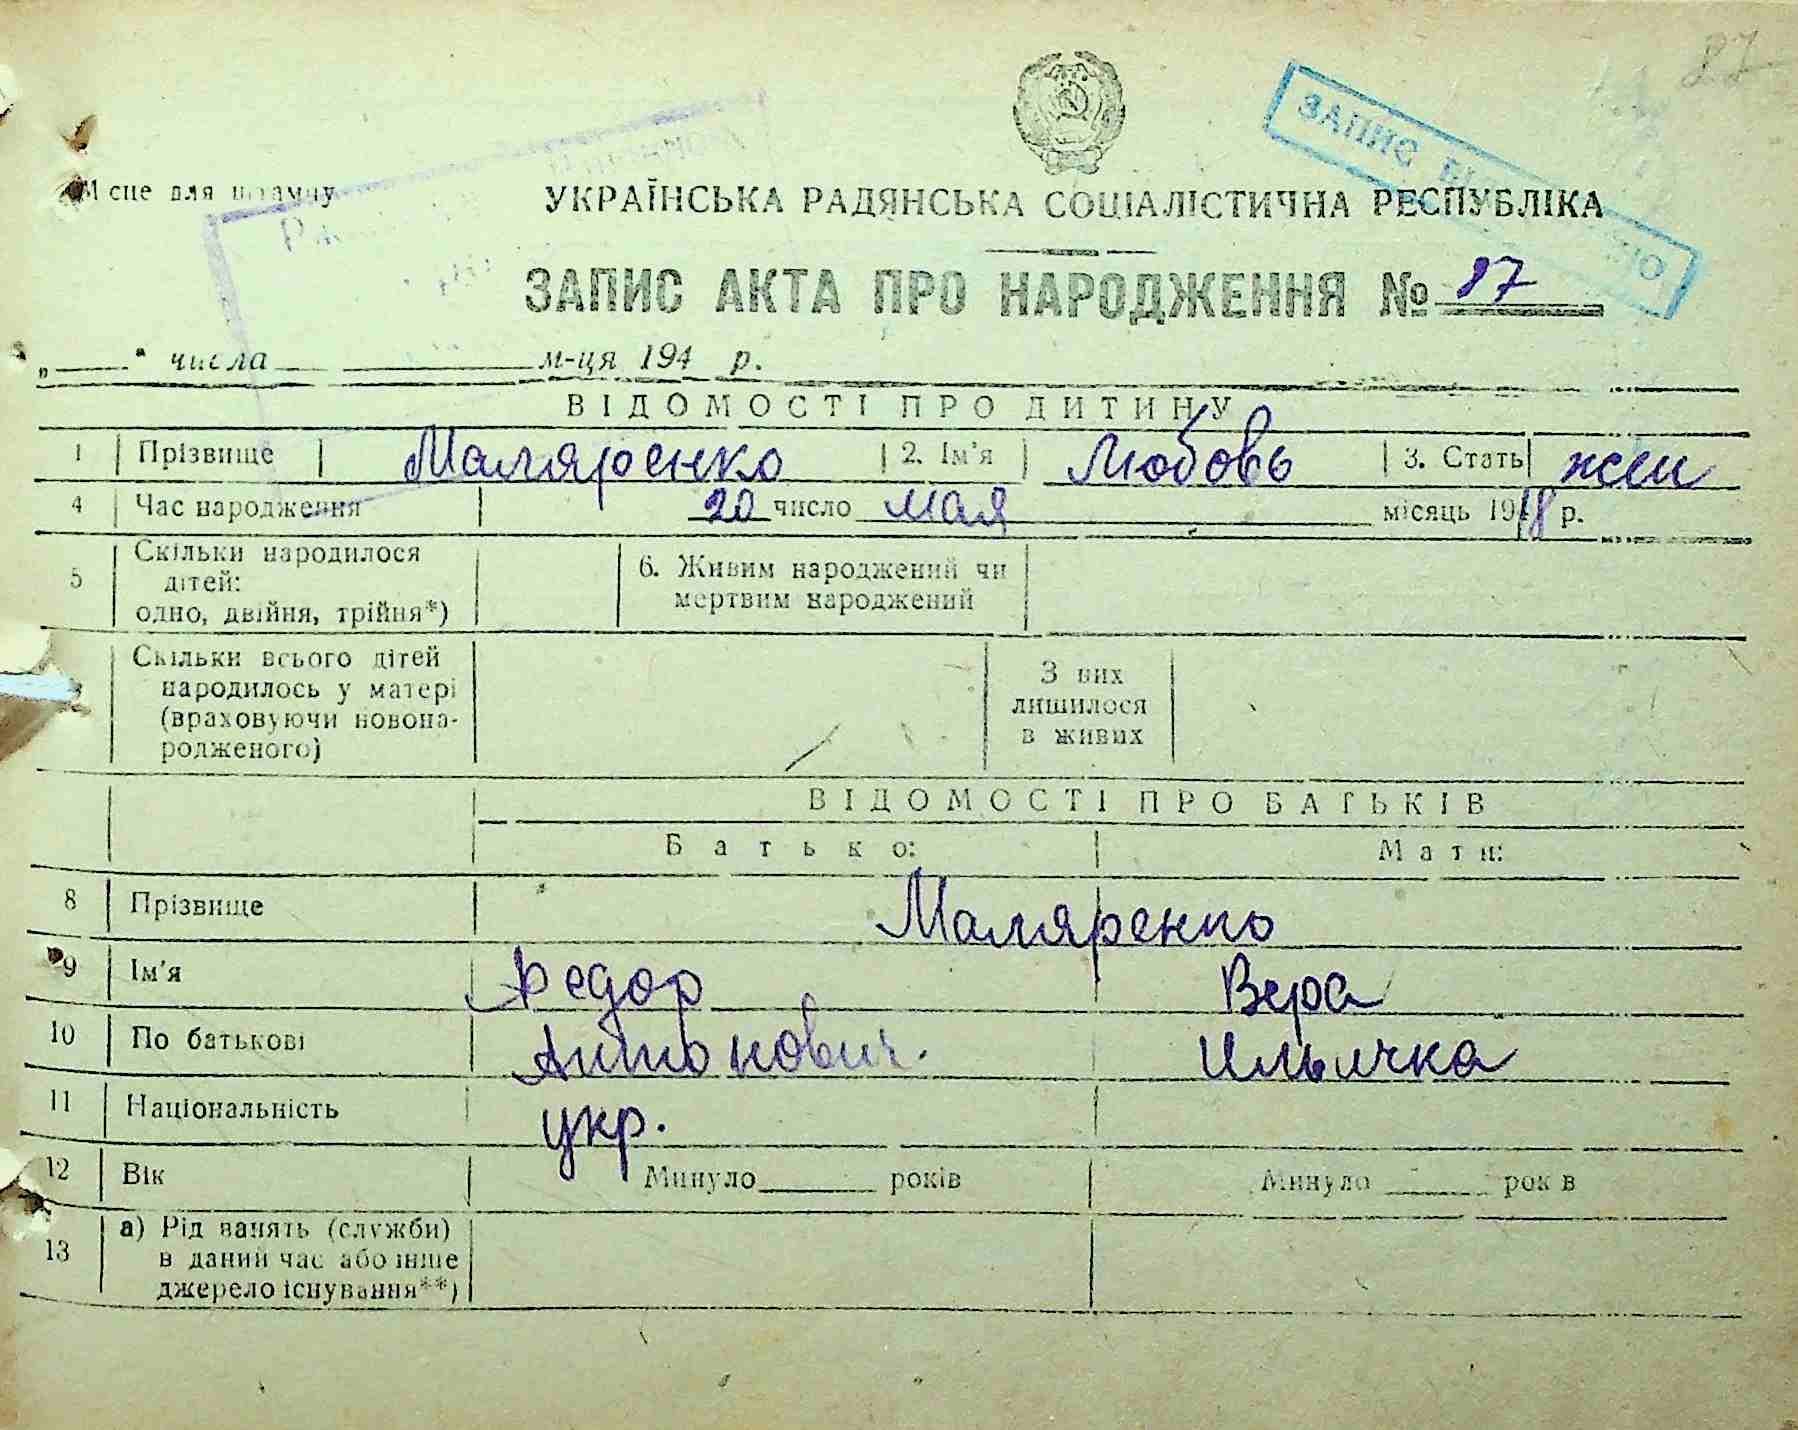 87
ЗАПИС
Місце для штампу
УКРАЇНСЬКА РАДЯНСЬКА СОЦІАЛІСТИЧНА РЕСПУБЛІКА
ЗАПИС АКТА ПРО НАРОДЖЕННЯ № 87
„ “ числа м-ця 194 р.
ВІДОМОСТІ ПРО ДИТИНУ
1 Прізвище Маляренко 2. Ім'я Любовь 3. Стать жен
4 Час народження 20 число мая місяць 1918 р.
5 Скільки народилося дітей: одно, двійня, трійня*) 6. Живим народжений чи мертвим народжений
Скільки всього дітей народилось у матері (враховуючи новонародженого) З них лишилося в живих
ВІДОМОСТІ ПРО БАТЬКІВ
Батько: Мати:
8 Прізвище Маляренко
9 Ім'я Федор Вера
10 По батькові Антонович. Ильична
11 Національність укр.
12 Вік Минуло років Минуло років
13 а) Рід занять (служби) в даний час або інше джерело існування**)